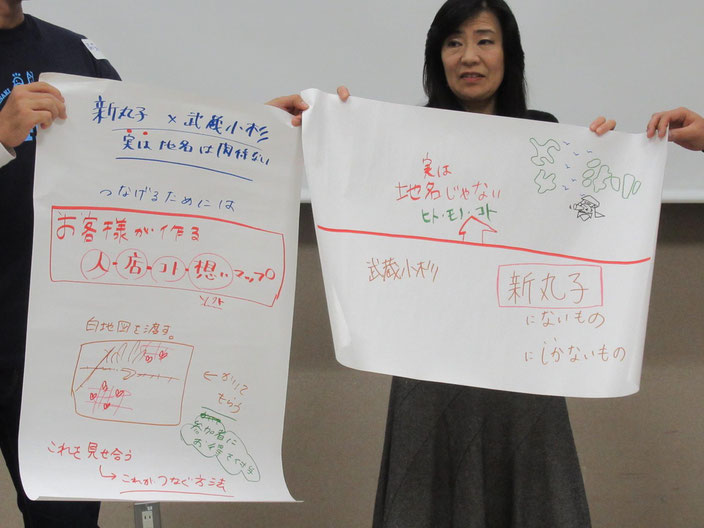 新丸子 × 武蔵小杉
実は地名は関係ない
つなげるためには
お客様が作る
人・店・コト・想いマップ
白地図を渡す。
← かいて
もらう
参加者に
これを見せ合う
↳ これがつなぐ方法
実は
地名じゃない
ヒト・モノ・コト
武蔵小杉
新丸子
にないもの
にしかないもの